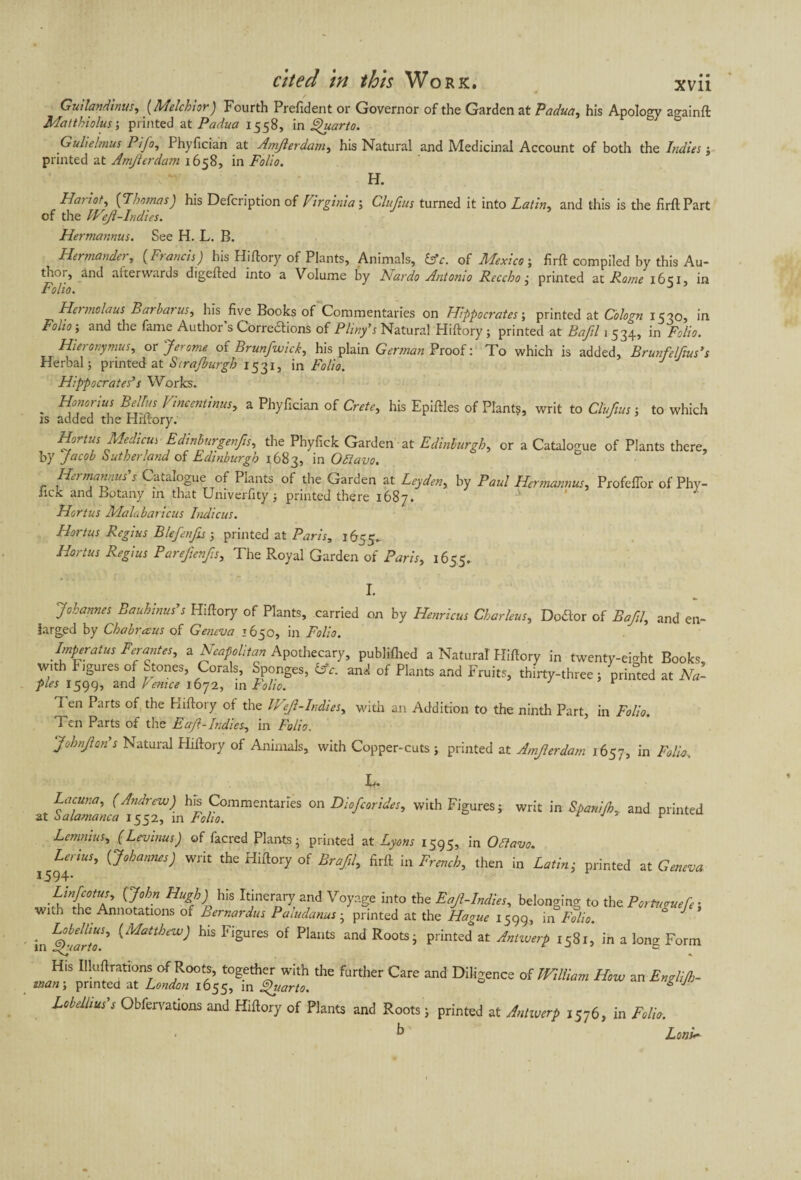 cited in this WORK. xvii
Guilandinus, (Melchior) Fourth Preſident or Governor of the Garden at Padua, his Apology againſt
Matthiolus; printed at Padua 1558, in Quarto.
Gulielmus Piſo, Phyſician at Amſterdam, his Natural and Medicinal Account of both the Indies;
printed at Amſterdam 1658, in Folio.
H.
Hariot, (Thomas) his Deſcription of Virginia; Cluſius turned it into Latin, and this is the firſt Part
of the Weſt-Indies.
Hermannus. See H. L. B.
Hermander, (Francis) his Hiſtory of Plants, Animals, &c. of Mexico; firſt compiled by this Au-
thor, and afterwards digeſted into a Volume by Nardo Antonio Reccho; printed at Rome 1651, in
Folio.
Hermolaus Barbarus, his five Books of Commentaries on Hippocrates; printed at Cologn 1530, in
Folio; and the ſame Author's Corrections of Pliny's Natural Hiſtory; printed at Baſil 1534, in Folio.
Hieronymus, or Jerome of Brunſwick, his plain German Proof: To which is added, Brunfelſius's
Herbal; printed at Straſburgh 1531, in Folio.
Hippocrates's Works.
Honorius Bellus Vincentinus, a Phyſician of Crete, his Epiſtles of Plants, writ to Cluſius; to which
is added the Hiſtory.
Hortus Medicus Edinburgenſis, the Phyſick Garden at Edinburgh, or a Catalogue of Plants there,
by Jacob Sutherland of Edinburgh 1683, in Octavo.
Hermannus's Catalogue of Plants of the Garden at Leyden, by Paul Hermannus, Profeſſor of Phy-
ſick and Botany in that Univerſity; printed there 1687.
Hortus Malabaricus Indicus.
Hortus Regius Bleſenſis; printed at Paris, 1655.
Hortus Regius Pareſienſis, The Royal Garden of Paris, 1655.
I.
Johannes Bauhinus's Hiſtory of Plants, carried on by Henricus Charleus, Doctor of Baſil, and en-
larged by Chabræus of Geneva 1650, in Folio.
Imperatus Ferantes, a Neapolitan Apothecary, publiſhed a Natural Hiſtory in twenty-eight Books,
with Figures of Stones, Corals, Sponges, &c. and of Plants and Fruits, thirty-three; printed at Na-
ples 1599, and Venice 1672, in Folio.
Ten Parts of the Hiſtory of the Weſt-Indies, with an Addition to the ninth Part, in Folio.
Ten Parts of the Eaſt-Indies, in Folio.
Johnſton's Natural Hiſtory of Animals, with Copper-cuts; printed at Amſterdam 1657, in Folio.
L.
Lacuna, (Andrew) his Commentaries on Dioſcorides, with Figures; writ in Spaniſh, and printed
at Salamanca 1552, in Folio.
Lemnius, (Levinus) of ſacred Plants; printed at Lyons 1595, in Octavo.
Lerius, (Johannes) writ the Hiſtory of Braſil, firſt in French, then in Latin; printed at Geneva
1594.
Linſcotus, (John Hugh) his Itinerary and Voyage into the Eaſt-Indies, belonging to the Portugueſe;
with the Annotations of Bernardus Paludanus; printed at the Hague 1599, in Folio.
Lobellius, (Matthew) his Figures of Plants and Roots; printed at Antwerp 1581, in a long Form
in Quarto.
His Illuſtrations of Roots, together with the further Care and Diligence of William How an Engliſh-
man; printed at London 1655, in Quarto.
Lobellius's Obſervations and Hiſtory of Plants and Roots; printed at Antwerp 1576, in Folio.
b Loni-